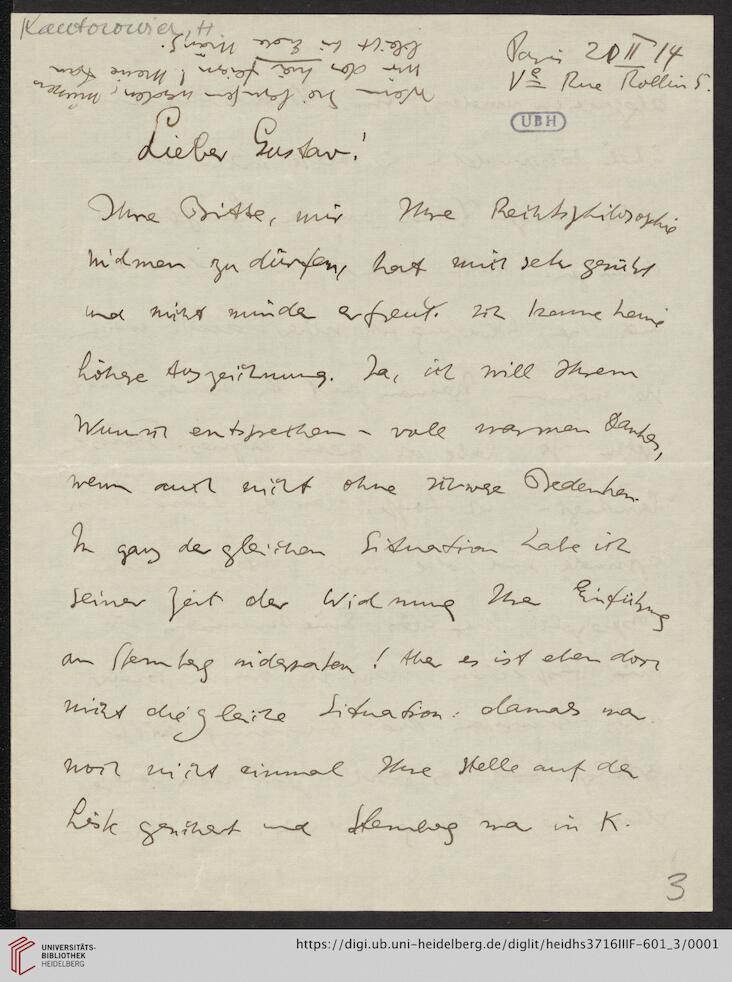 Kantorowicz, H.
Paris 20 II 14
Ve Rue Rollin 5.
UBH
Wenn Sie berufen werden, müssen
wir das hier feiern! Meine Frau
bleibt bis Ende März.
Lieber Gustav!
Ihre Bitte, mir Ihre Rechtsphilosophie
widmen zu dürfen, hat mich sehr gerührt
und nicht minder erfreut. Ich kenne keine
höhere Auszeichnung. Ja, ich will Ihrem
Wunsch entsprechen – voll warmen Dankes,
wenn auch nicht ohne schwere Bedenken.
In ganz der gleichen Situation habe ich
seiner Zeit der Widmung Ihrer Einführung
an Sternberg widerraten! Aber es ist eben doch
nicht die gleiche Situation: damals war
noch nicht einmal Ihre Stelle auf der
Liste gesichert und Sternberg war in K.
3
UNIVERSITÄTS-
BIBLIOTHEK
HEIDELBERG
https://digi.ub.uni-heidelberg.de/diglit/heidhs3716IIIF-601_3/0001